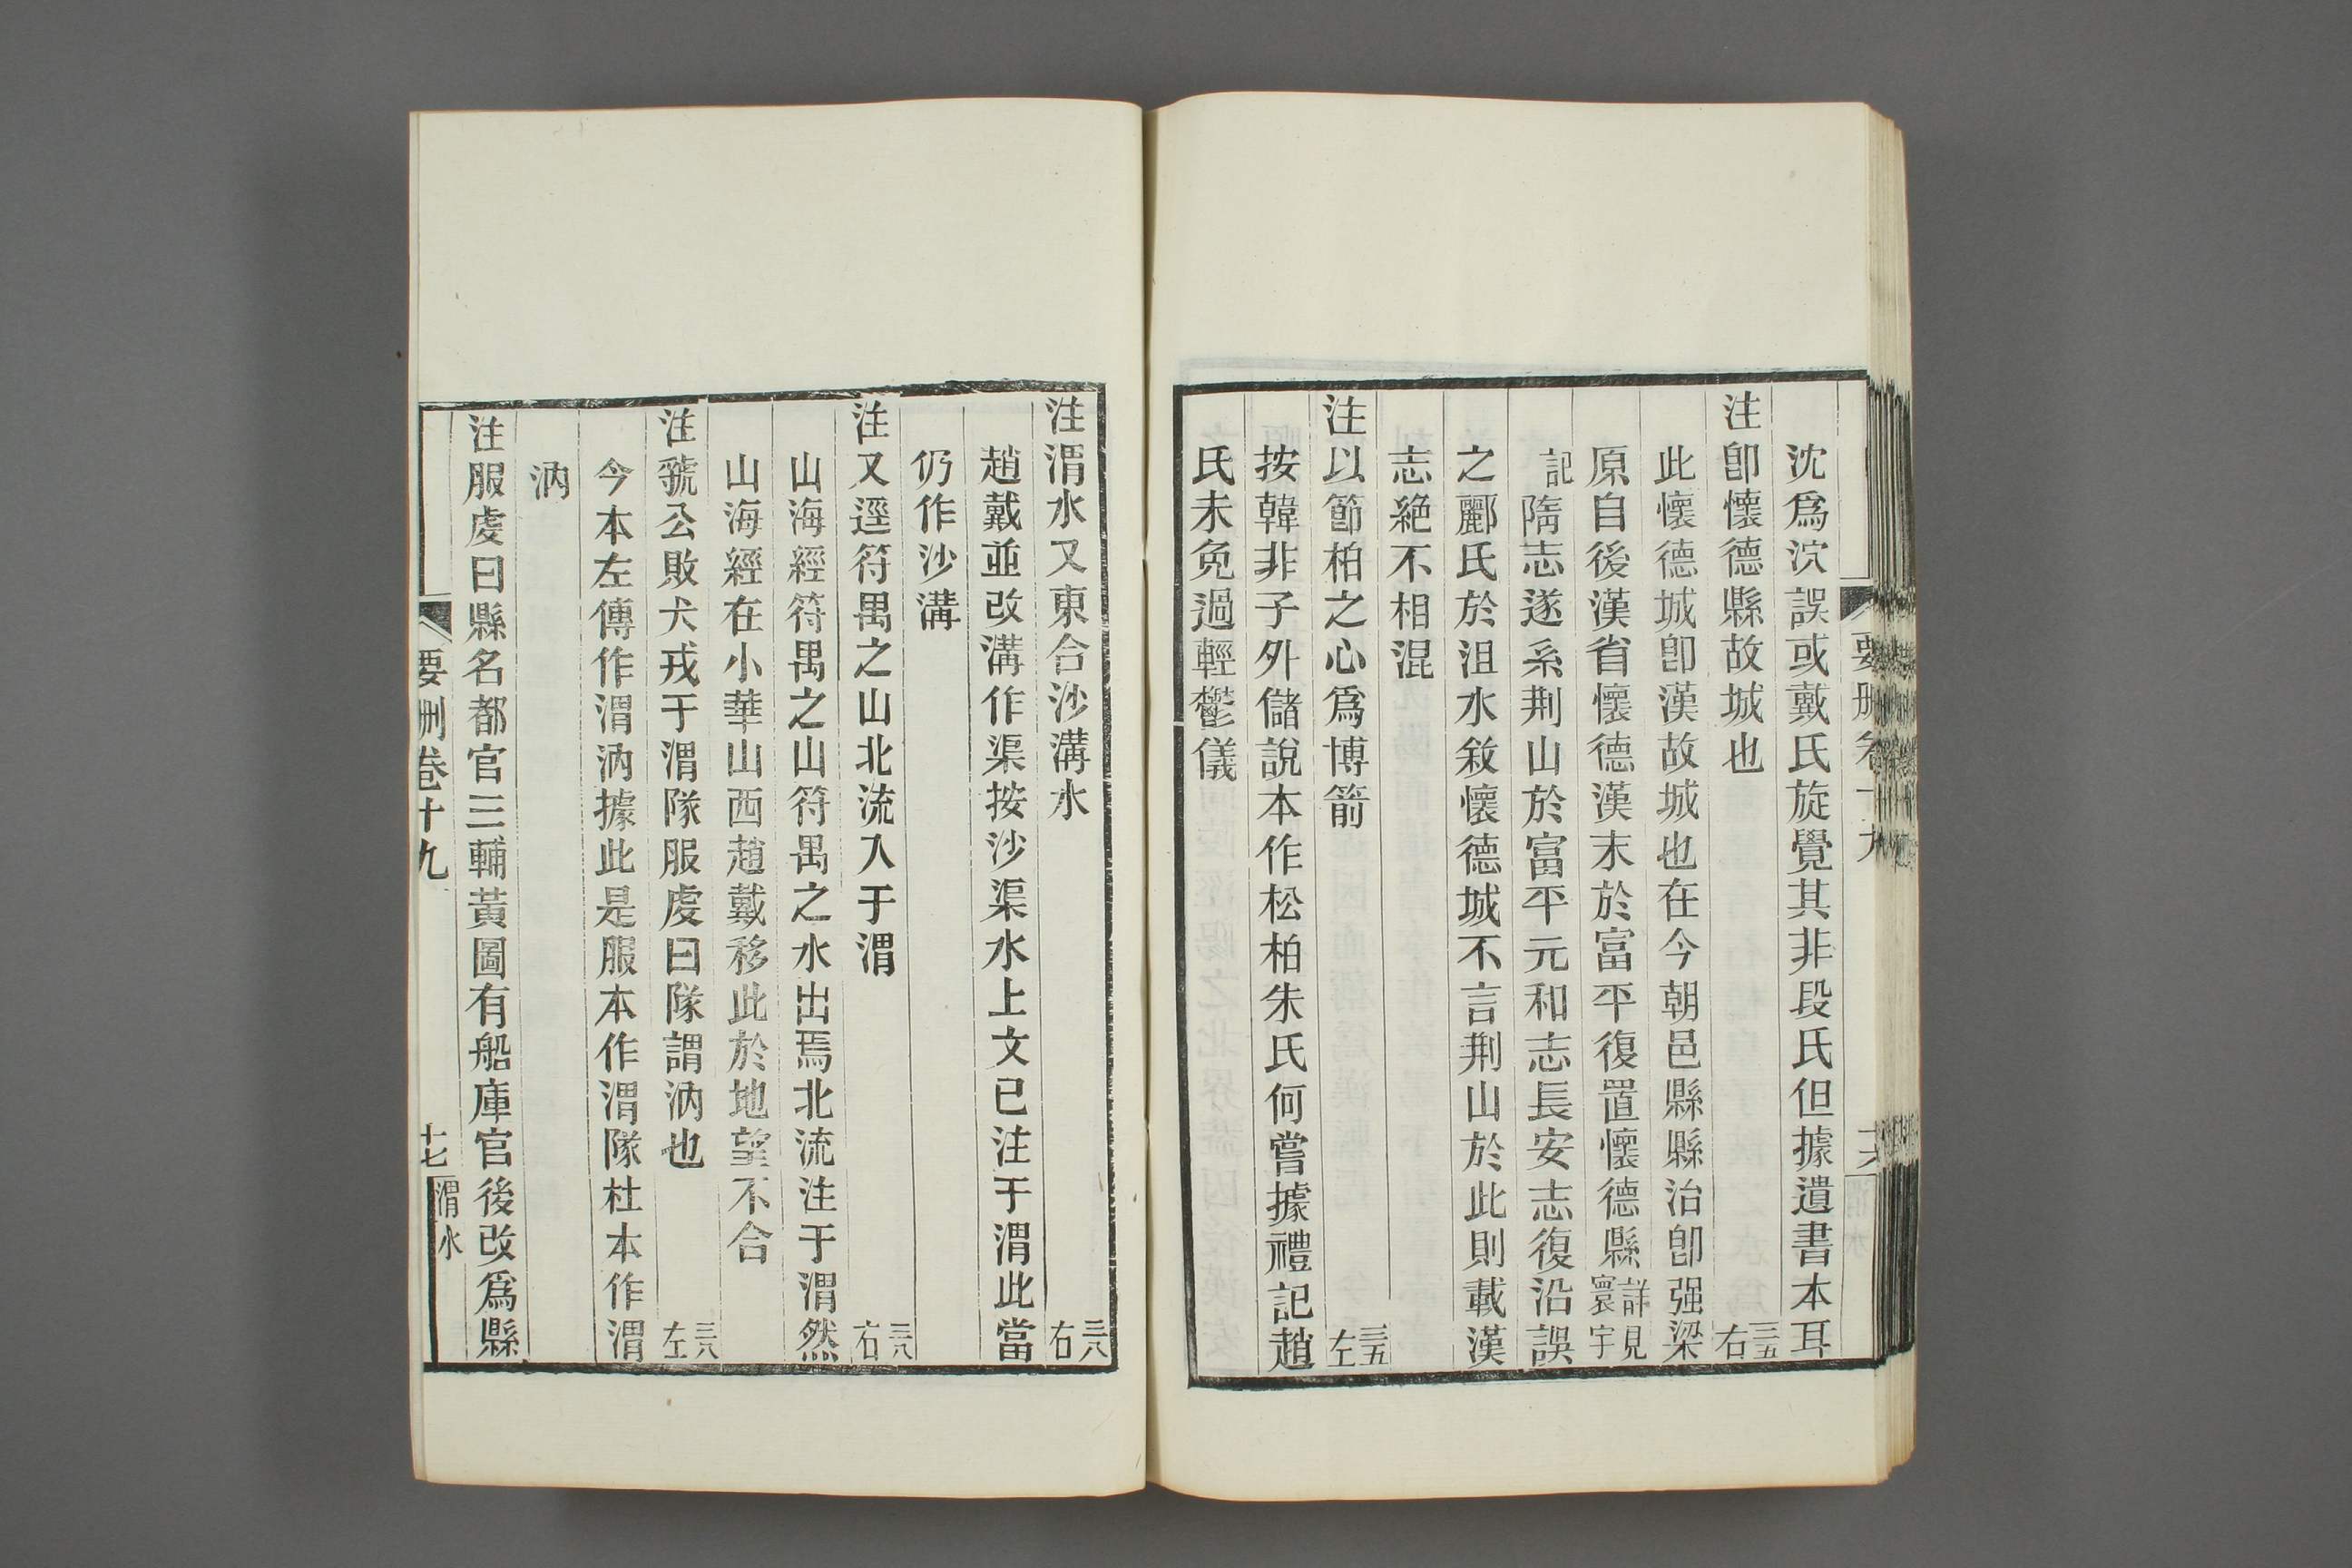 沈爲沇誤或戴氏旋覺其非段氏但據遺書本耳
注卽懷德縣故城也 三五右
此懷德城卽漢故城也在今朝邑縣縣治卽强梁
原自後漢省懷德漢末於富平復置懷德縣 詳見寰宇
記 隋志遂系荆山於富平元和志長安志復沿誤
之酈氏於沮水敘懷德城不言荆山於此則載漢
志絶不相混
注以節柏之心爲博箭 三五左
按韓非子外儲說本作松柏朱氏何嘗據禮記趙
氏未免過輕鬱儀
注渭水又東合沙溝水 三六右
趙戴並改溝作渠按沙渠水上文已注于渭此當
仍作沙溝
注又逕符禺之山北流入于渭 三六右
山海經符禺之山符禺之水出焉北流注于渭然
山海經在小華山西趙戴移此於地望不合
注虢公敗犬戎于渭隊服虔曰隊謂汭也 三六左
今本左傳作渭汭據此是服本作渭隊杜本作渭
汭
注服虔曰縣名都官三輔黃圖有船庫官後改爲縣
要删卷十九 十七 渭水